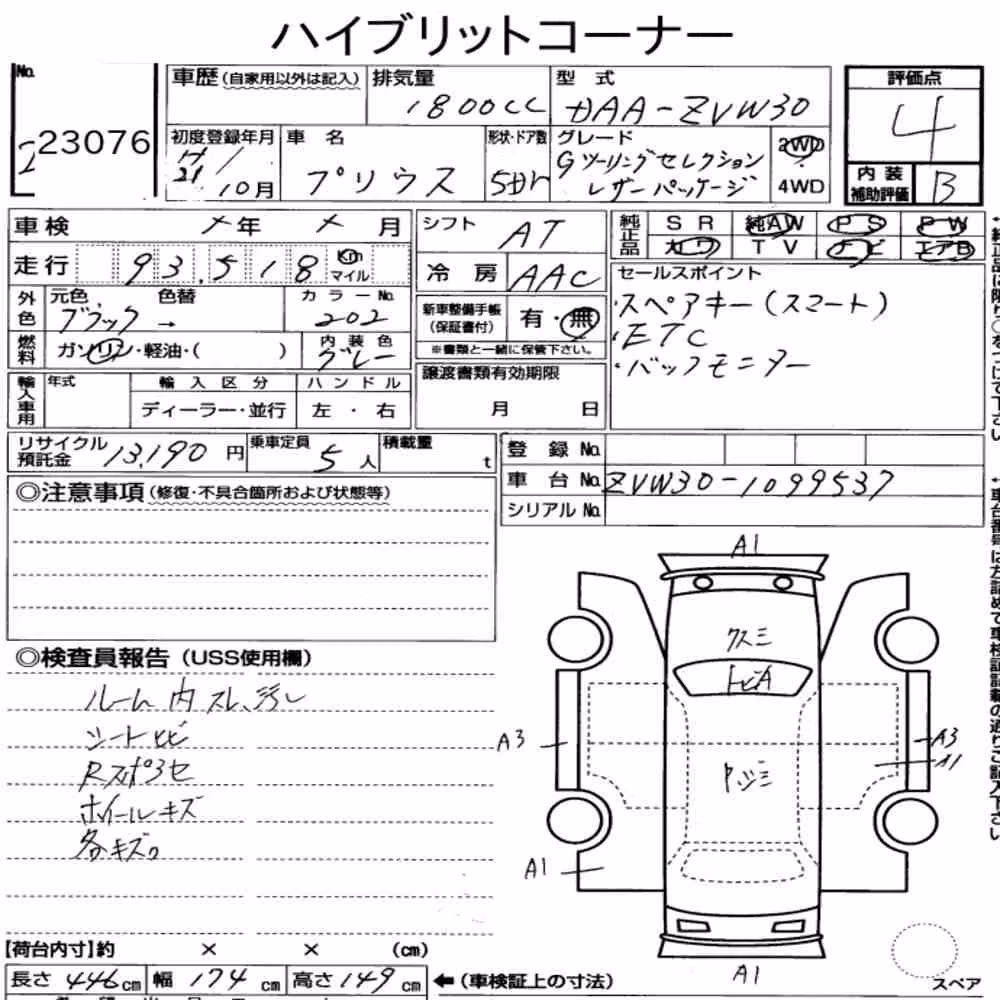 ハイブリットコーナー
No.
23076
車歴（自家用以外は記入）
排気量
1800CC
型 式
DAA-ZVW30
評価点
4
内装
補助評価
B
初度登録年月
H
21
10月
車 名
プリウス
形状・ドア数
5Dr
グレード
Gツーリングセレクション
レザーパッケージ
2WD
・
4WD
車検 ×年 ×月
走行 93,518 Km
マイル
シフト AT
冷房 AAC
純正品 SR 純AW PS PW
カワ TV ナビ エアB
セールスポイント
・スペアキー（スマート）
・ETC
・バックモニター
外色
元色 色替
ブラック →
カラーNo.
202
新車整備手帳
（保証書付）
有・無
※書類と一緒に保管下さい。
燃料
ガソリン・軽油・（ ）
内装色
グレー
輸入車用
年式
輸入区分
ディーラー・並行
ハンドル
左・右
譲渡書類有効期限
月 日
リサイクル
預託金
13,190円
乗車定員
5人
積載量
t
登録No.
車台No. ZVW30-1099537
シリアルNo.
◎注意事項（修復・不具合箇所および状態等）
◎検査員報告（USS使用欄）
ルーム内スレ、汚レ
シートヒビ
ホイールキズ
各キズ
A1
クスミ
トビA
A3
A3
A1
A1
A1
【荷台内寸】約 × × （cm）
長さ 446cm 幅 174cm 高さ 149cm
←（車検証上の寸法）
スペア